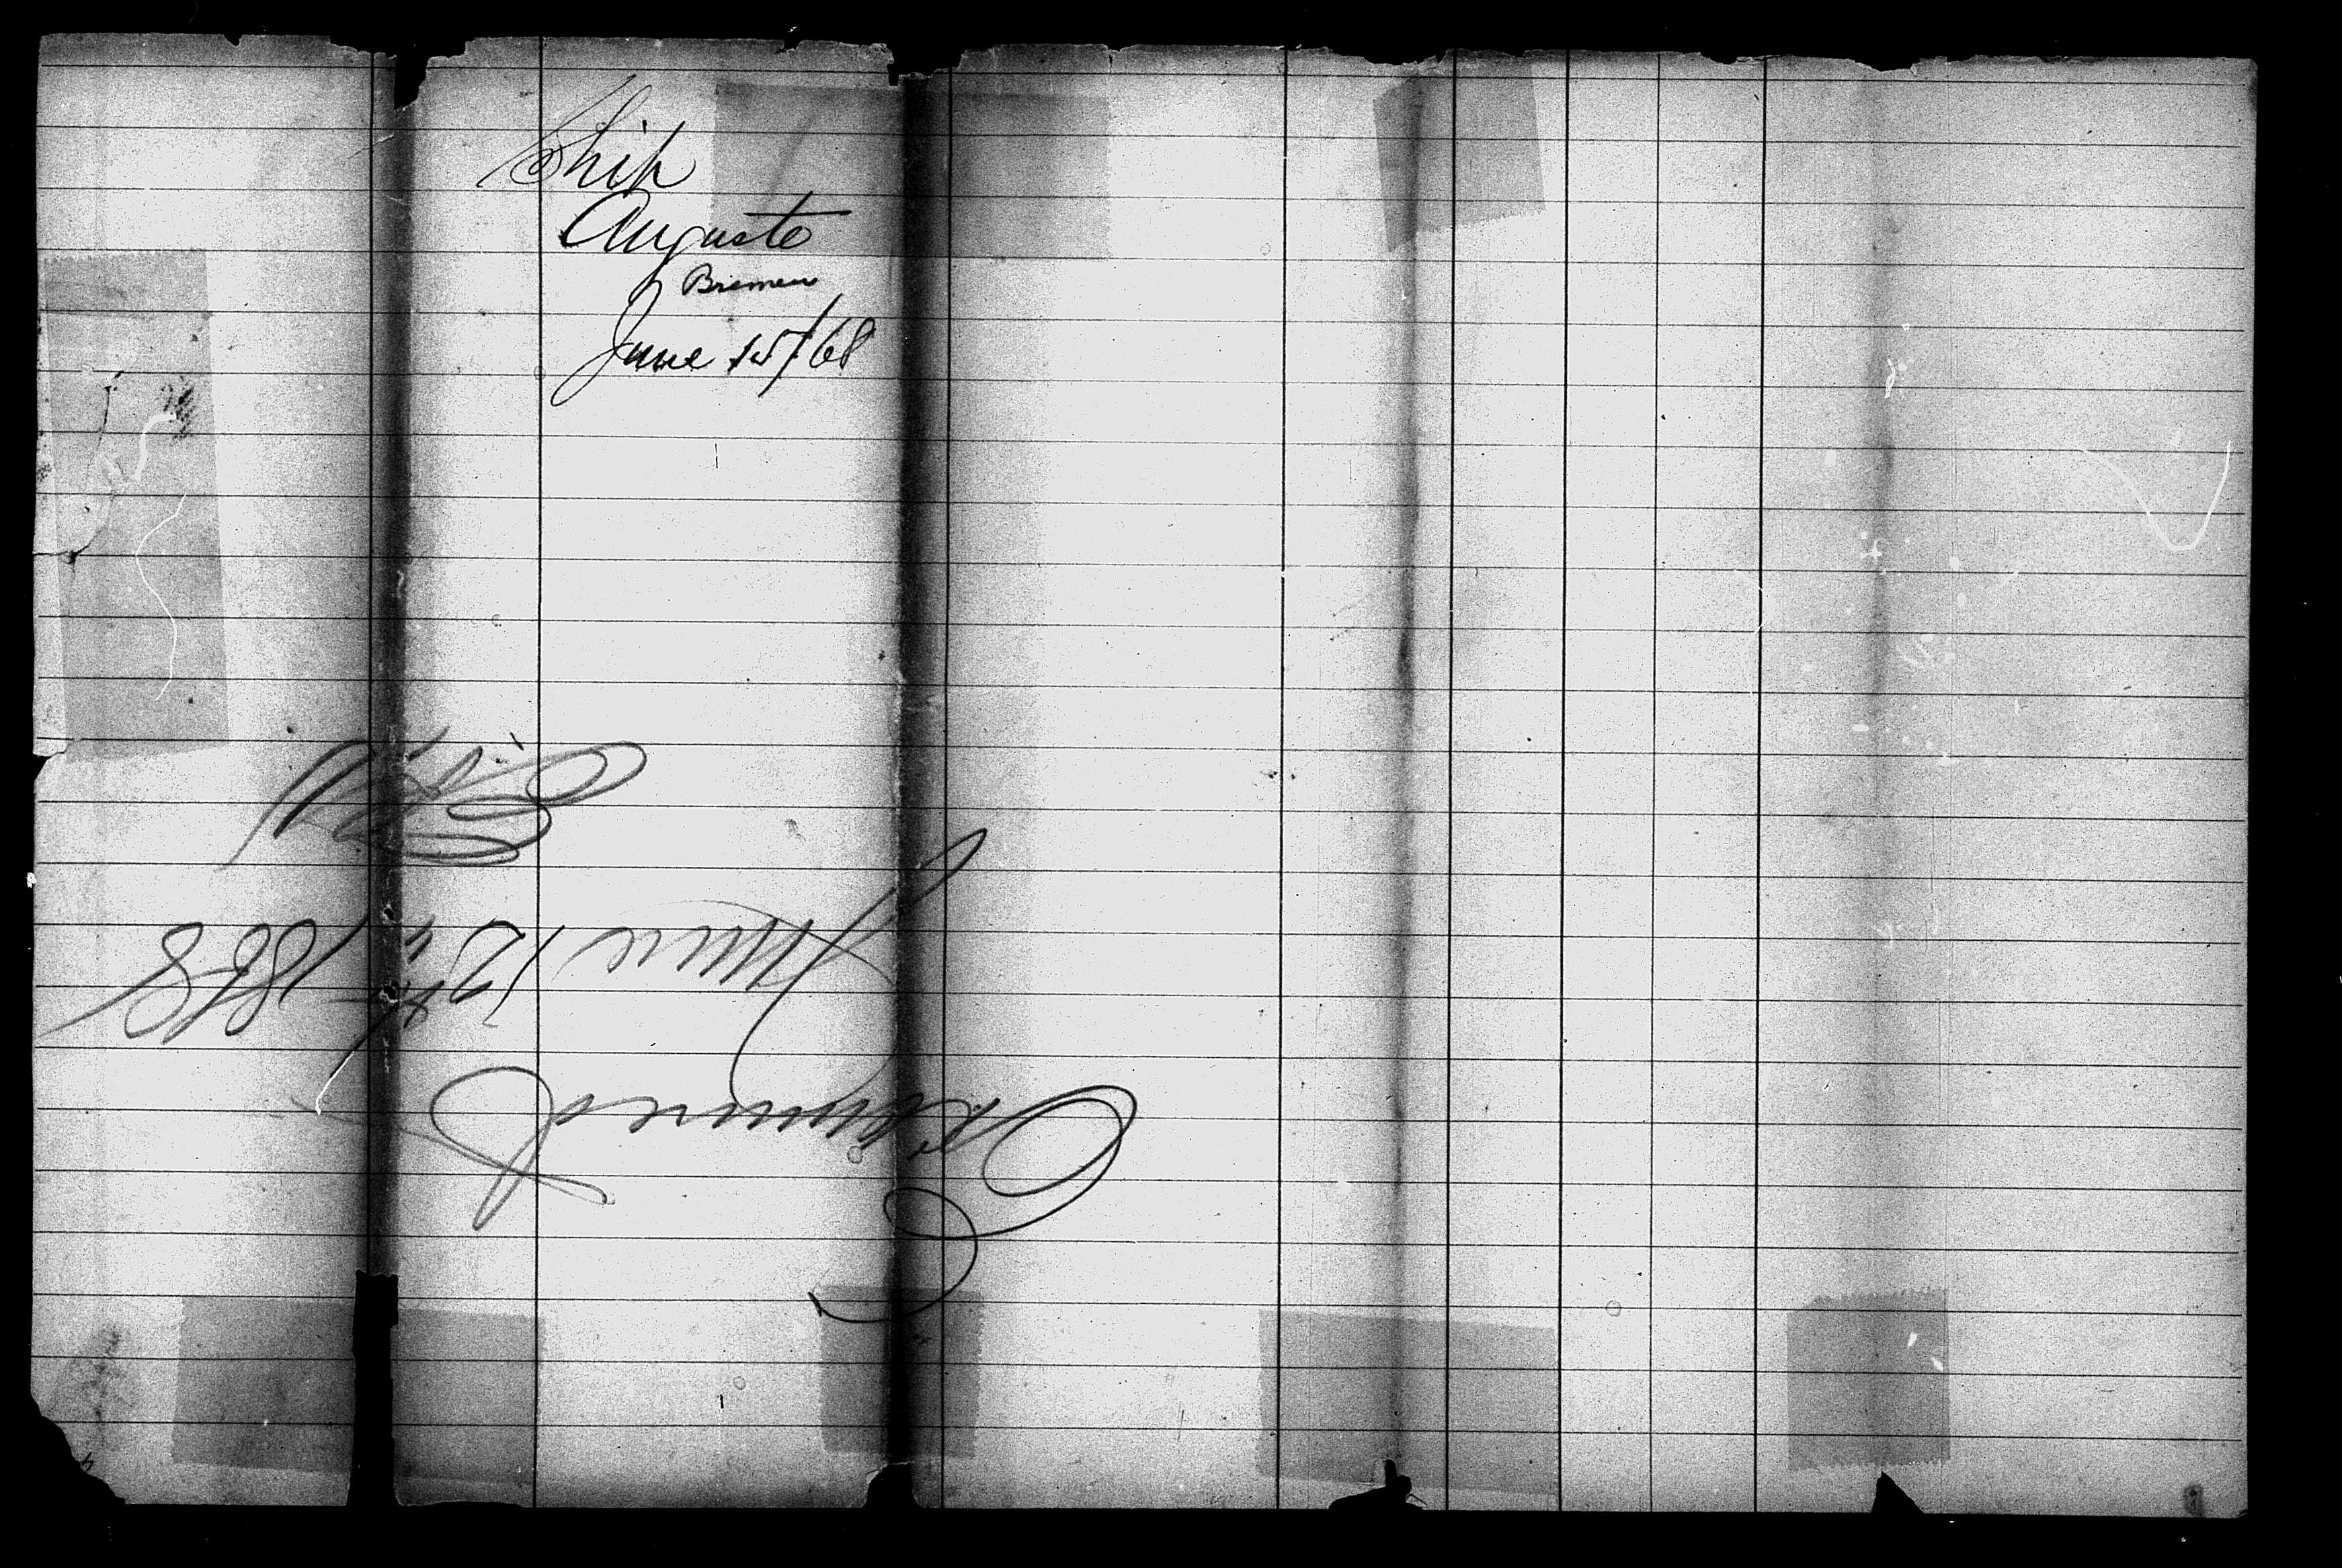 Ship
Auguste
Bremen
June 15/68
Examined
June 12th 1868